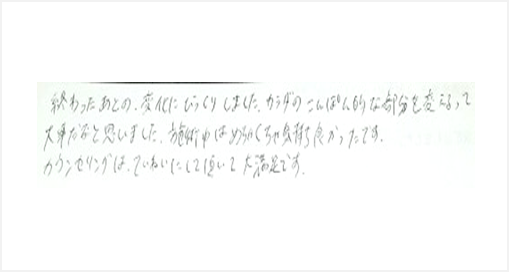 終わったあとの、変化にびっくりしました。カラダのこんぽん的な部分を変えるって
大事だなと思いました。施術中はめちゃくちゃ気持ち良かったです。
カウンセリングは、ていねいにして頂いて大満足です。